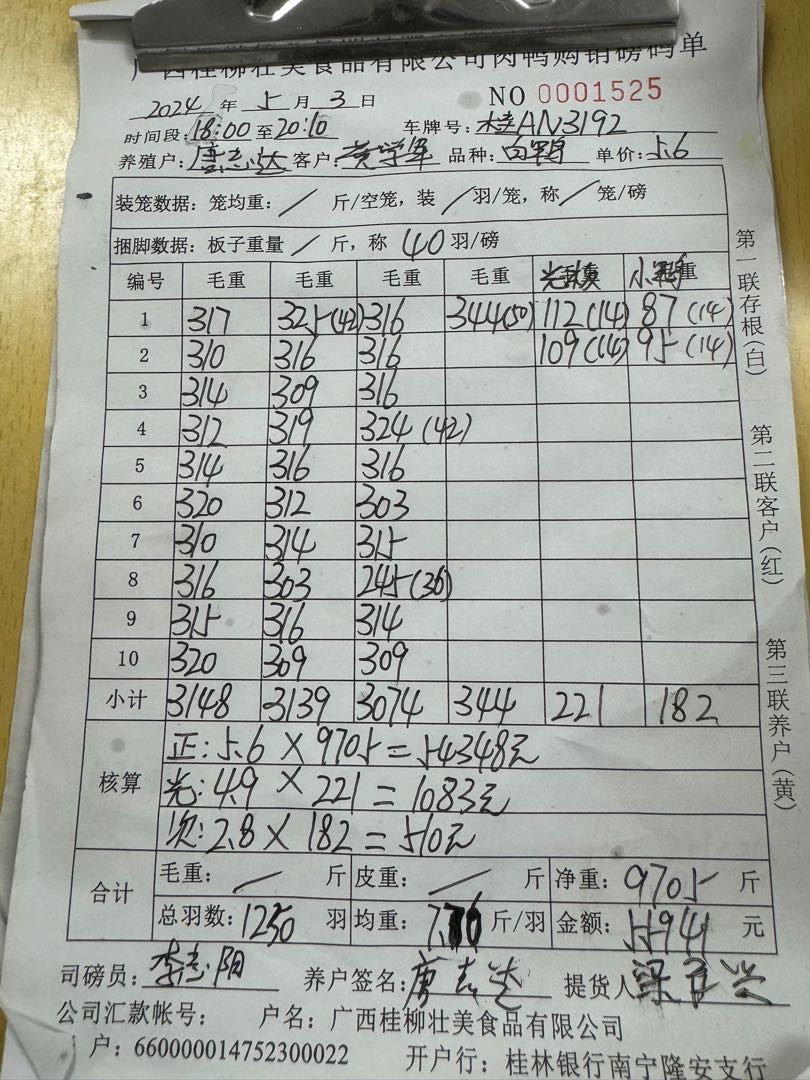 广西桂柳壮美食品有限公司肉鸭购销磅码单
2024年5月3日 NO 0001525
时间段:18:00至20:10 车牌号:桂AN3192
养殖户:唐志达 客户:黄学军 品种:白鸭 单价:5.6
装笼数据:笼均重:/斤/空笼,装/羽/笼,称/笼/磅
捆脚数据:板子重量/斤,称40羽/磅
编号 毛重 毛重 毛重 毛重 毛重 小鸭
1 317 325(42) 316 344(50) 112(14) 87(14)
2 310 316 316 109(14) 95(14)
3 314 309 316
4 312 319 324(42)
5 314 316 316
6 320 312 303
7 310 314 315
8 316 303 245(36)
9 315 316 314
10 320 309 309
小计 3148 3139 3074 344 221 182
核算
正:5.6×9705=54348元
光:4.9×221=1083元
次:2.8×182=510元
合计
毛重:/斤 皮重:/斤 净重:9705斤
总羽数:1250羽 均重:斤/羽 金额:55941元
司磅员:李志阳 养户签名:唐志达 提货人
公司汇款帐号: 户名:广西桂柳壮美食品有限公司
户:660000014752300022 开户行:桂林银行南宁隆安支行
第一联存根(白)
第二联客户(红)
第三联养户(黄)